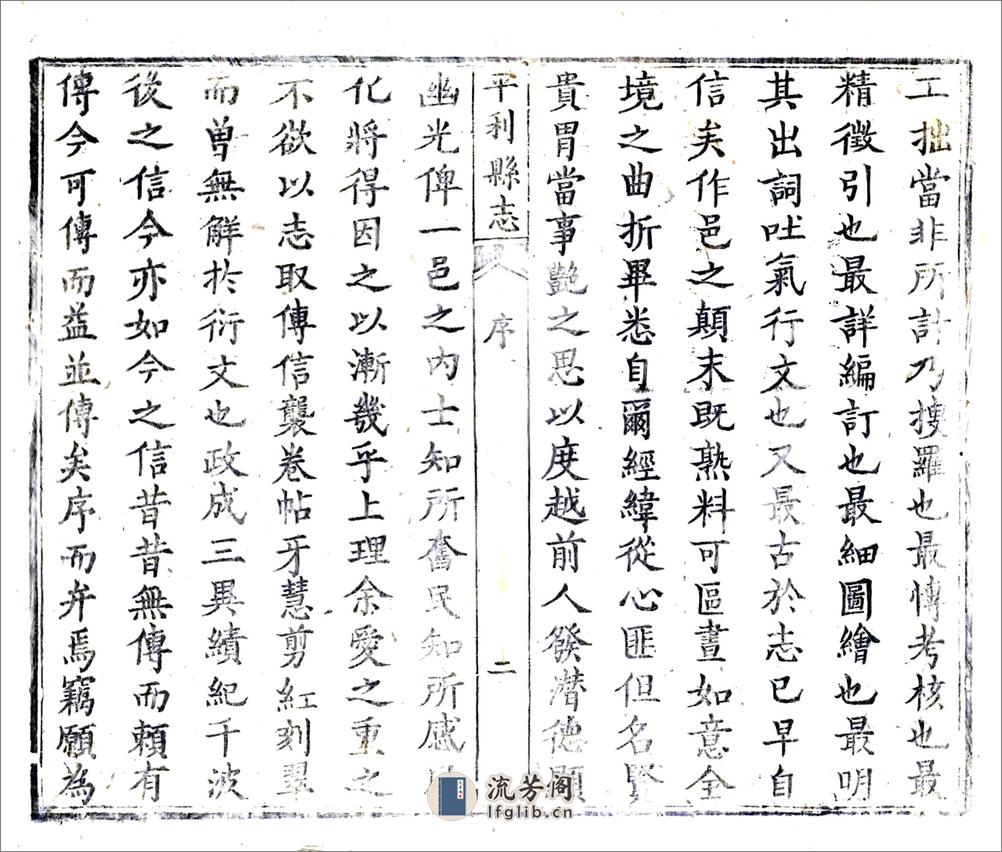 工拙當非所計乃搜羅也最博考核也最
精徵引也最詳編訂也最細圖繪也最明
其出詞吐氣行文也又最古於志已早自
信矣作邑之顛末既熟料可區畫如意全
境之曲折畢悉自爾經緯從心匪但名賢
貴胃當事艷之思以度越前人發潛德顯
平利縣志
序
二
幽光俾一邑之內士知所奮民知所感
化將得因之以漸幾乎上理余愛之重之
不欲以志取傳信襲卷帖牙慧剪紅刻翠
而曾無解於衍文也政成三異績紀千波
後之信今亦如今之信昔昔無傳而賴有
傳今可傳而益並傳矣序而弁焉竊願為
流芳阁
lfglib.cn